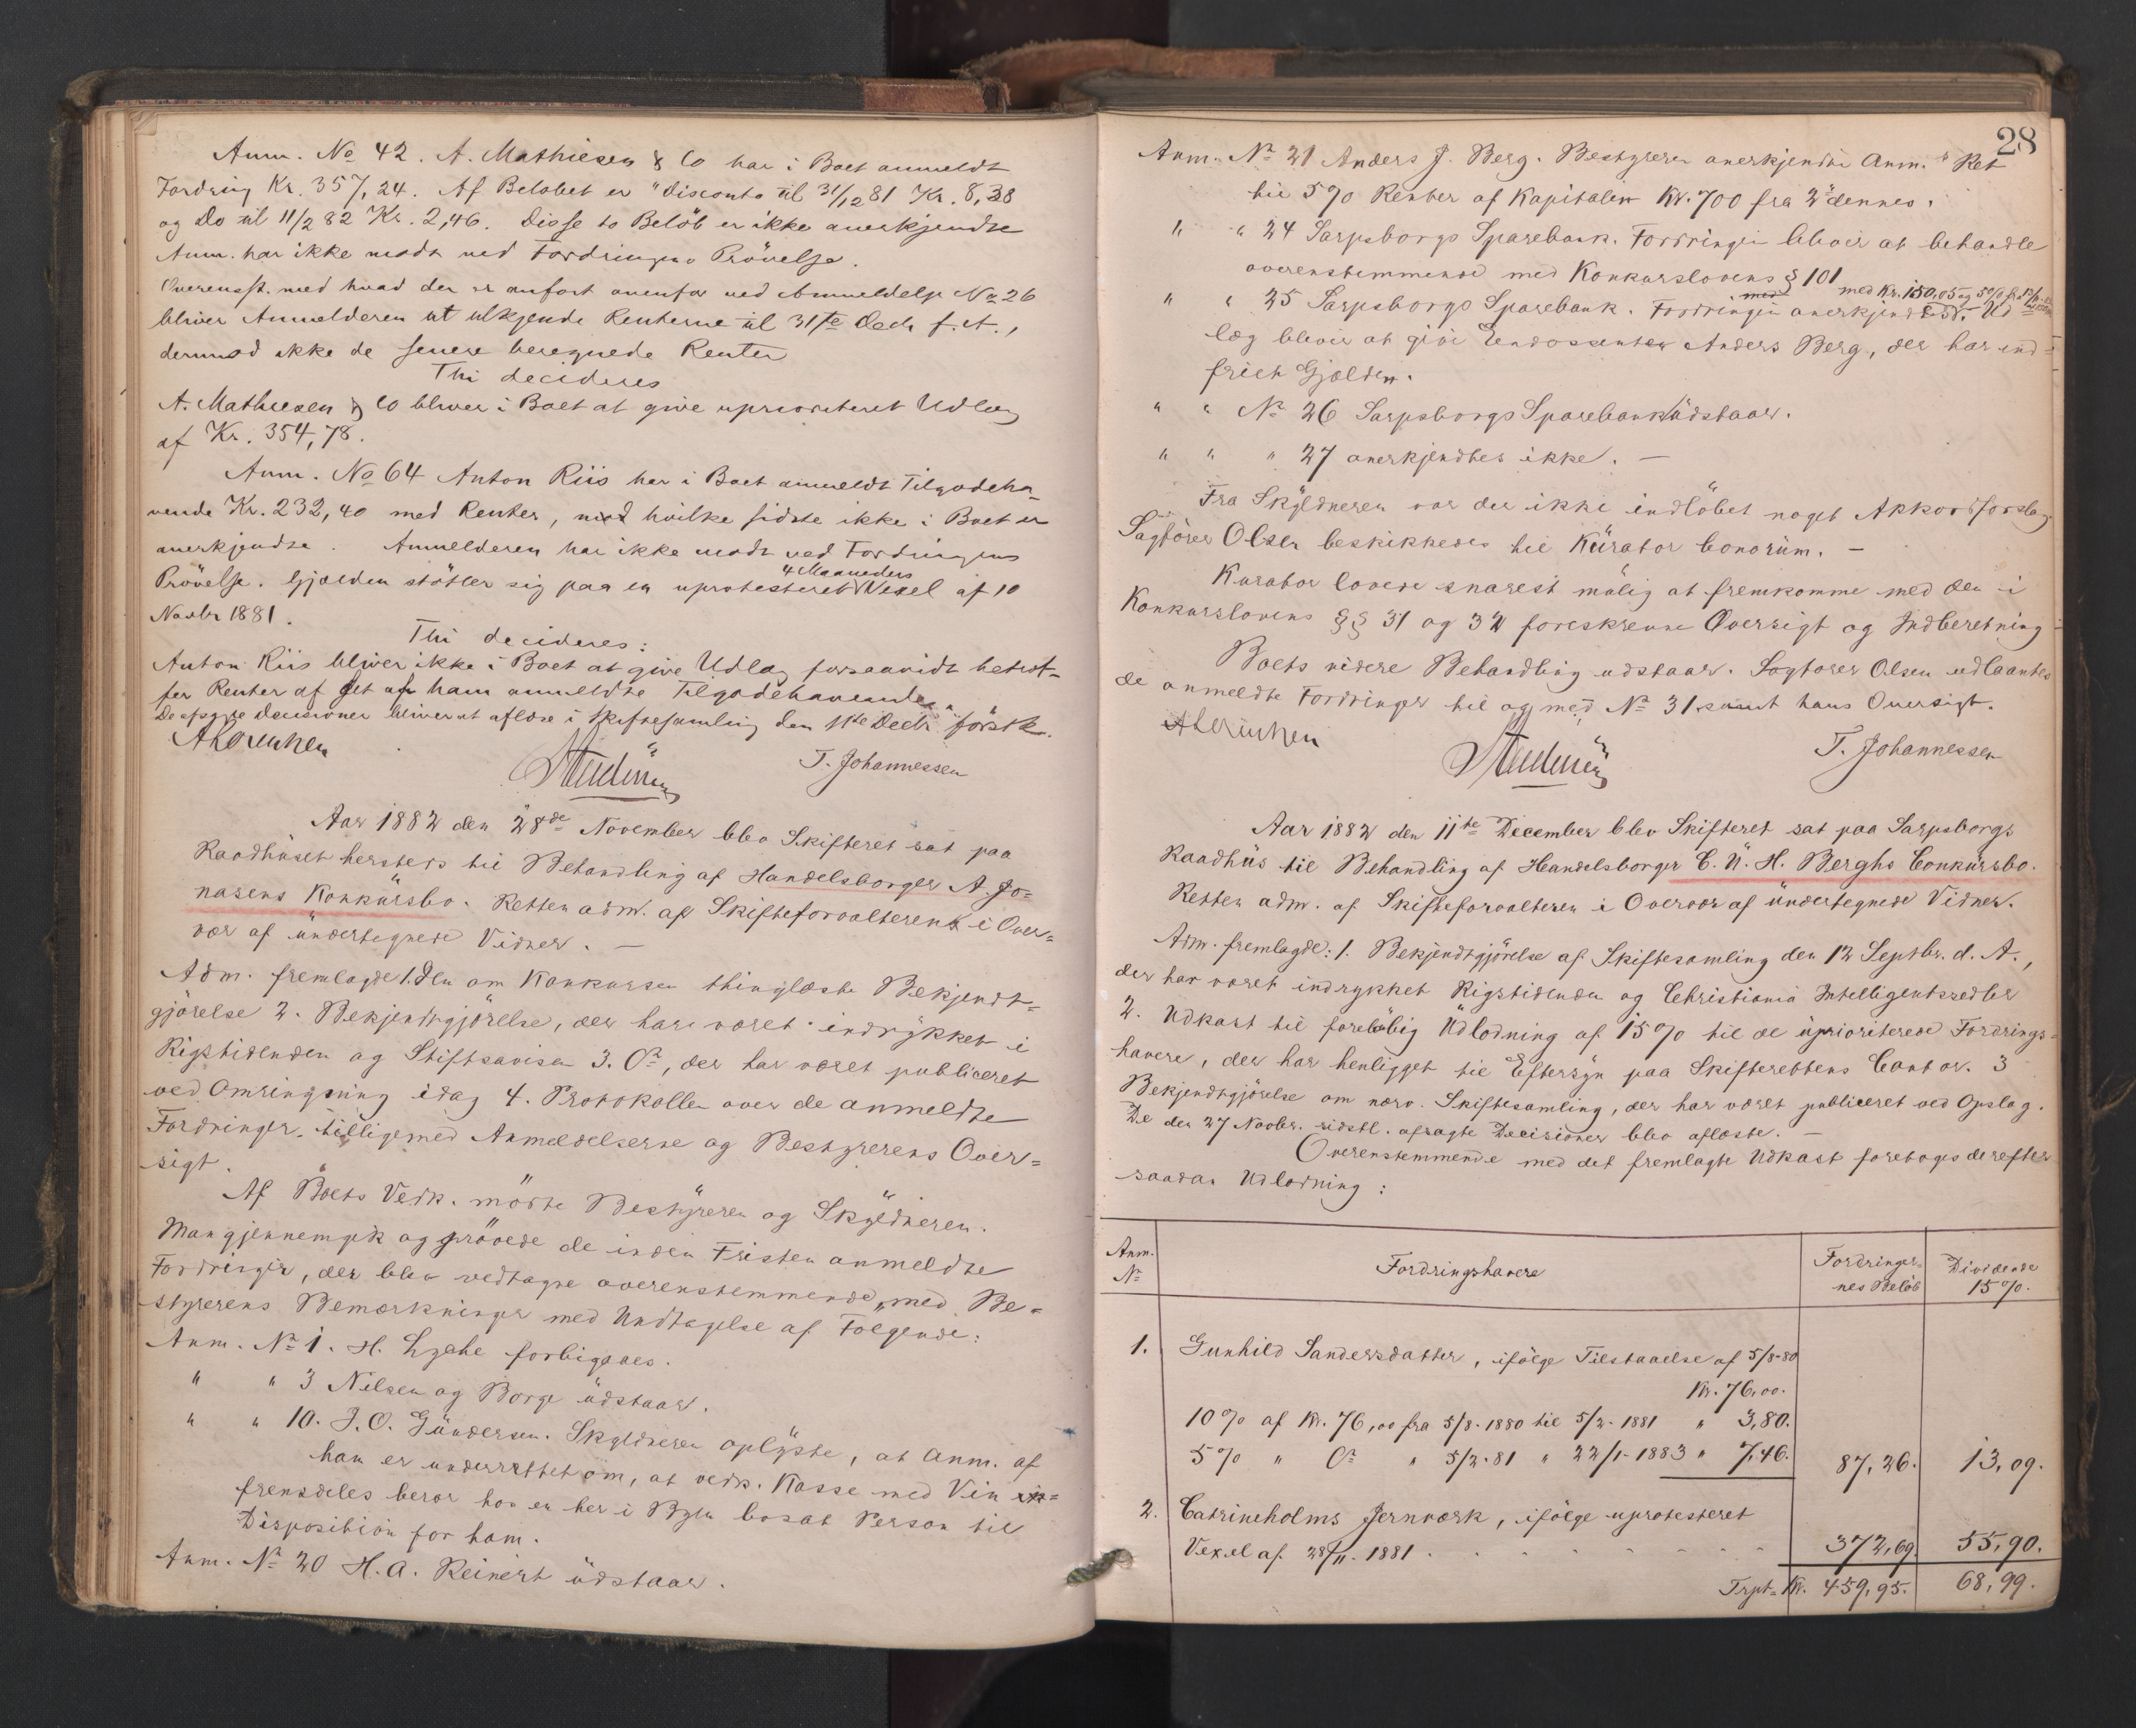 Anm. No 42. A. Mathiesen & Co har i Boet anmeldt
Fordring Kr. 357,24. Af Beløbet er "Disconto til 31/12 81 Kr. 8,38
og Do til 11/2 82 Kr. 2,46. Disse to Beløb er ikke anerkjendte
Anm. har ikke mødt ved Fordringens Prövelse.
Overensst. med hvad der er anført ovenfor ved Anmeldelse No 26
bliver Anmelderen at tilkjende Renterne til 31te Decbr f. A.,
derimod ikke de senere beregnede Renter
Thi decideres
A. Mathiesen & Co bliver i Boet at give uprioriteret Udlæg
af Kr. 354,78.
Anm. No 64 Anton Riis har i Boet anmeldt Tilgodeha-
vende Kr. 232,40 med Renter, hvilke sidste ikke i Boet er
anerkjendte. Anmelderen har ikke mødt ved Fordringens
Prövelse. Gjælden stötter sig paa en uprotesteret 4 Maaneders Vexel af 10
Novbr 1881.
Thi decideres:
Anton Riis bliver ikke i Boet at give Udlæg forsaavidt betræf-
fer Renter af det af ham anmeldte Tilgodehavende.
De afsagte Decisioner bliver at aflæse i Skiftesamling den 11te Decbr. förstk.
T. Johannessen
Aar 1882 den 28de November blev Skifteret sat paa
Raadhuset hersteds til Behandling af Handelsborger A. Jo=
nasens Konkursbo. Retten adm. af Skifteforvalteren i Over=
vær af undertegnede Vidner. —
Adm. fremlagde 1. Den om Konkursen thinglæste Bekjendt=
gjörelse 2. Bekjendtgjörelse, der har været indrykket i
Rigstidenden og Stiftsavisen 3. Do, der har været publiceret
ved Omringning idag 4. Protokollen over de anmeldte
Fordringer, tilligemed Anmeldelserne og Bestyrerens Over=
sigt.
Af Boets Vedk. mödte Bestyreren og Skyldneren.
Man gjennemgik og prövede de inden Fristen anmeldte
Fordringer, der blev vedtagne overenstemmende med Be=
styrerens Bemærkninger med Undtagelse af Følgende:
Anm. No 1. H. Lyche forbigaaes.
" " 3 Nilsen og Borge udstaar.
" " 10. J. O. Gundersen. Skyldneren oplyste, at Anm. af
ham er underrettet om, at vedk. Kasse med Vin
fremdeles beror hos en her i Byen bosat Person til
Disposition for ham.
Anm. No 20 H. A. Reinert udstaar.
28
Anm. No 21 Anders J. Berg. Bestyreren anerkjendte Anm.s Ret
til 5% Renter af Kapitalen Kr. 700 fra 2den dennes.
" " 24 Sarpsborgs Sparebank. Fordringen bliver at behandle
overenstemmende med Konkurslovens § 101
" " 25 Sarpsborgs Sparebank. Fordringen anerkjendtes med Kr. 150,05 og 5% fra Ud=
læg bliver at give Endossenten Anders Berg, der har ind=
friet Gjælden.
" " No 26 Sarpsborgs Sparebank udstaar.
" " " 27 anerkjendtes ikke. —
Fra Skyldneren var der ikke indlöbet noget Akkordforslag
Sagförer Olsen beskikkedes til Kurator bonorum. —
Kurator lovede snarest mulig at fremkomme med den i
Konkurslovens §§ 31 og 32 foreskrevne Oversigt og Indberetning
Boets videre Behandling udstaar. Sagförer Olsen udlaantes
de anmeldte Fordringer til og med No 31 samt hans Oversigt.
T. Johannessen
Aar 1882 den 11te December blev Skifteret sat paa Sarpsborgs
Raadhus til Behandling af Handelsborger C. U. H. Berghs Conkursbo.
Retten adm. af Skifteforvalteren i Overvær af undertegnede Vidner.
Adm. fremlagde: 1. Bekjendtgjörelse af Skiftesamling den 12 Septbr. d. A.,
der har været indrykket Rigstidenden og Christiania Intelligentssedler
2. Udkast til forelöbig Udlodning af 15% til de uprioriterede Fordrings=
havere, der har henligget til Eftersyn paa Skifterettens Contor. 3
Bekjendtgjörelse om nærv. Skiftesamling, der har været publiceret ved Opslag.
De den 27 Novbr. sidstl. afsagte Decisioner blev aflæste. —
Overenstemmende med det fremlagte Udkast foretoges derefter
saadan Udlodning:
Anm. No Fordringshavere Fordringer- nes Beløb Dividende 15%.
1. Gunhild Sandersdatter, ifölge Tilstaaelse af 5/8-80
Kr. 76,00.
10% af Kr. 76,00 fra 5/8-1880 til 5/2-1881 " 3,80.
5% " Do " 5/2-81 " 22/1-1883 " 7,46. 87,26. 13,09.
2. Catrineholms Jernværk, ifölge uprotesteret
Vexel af 28/11-1881 372,69. 55,90.
Trpt. Kr. 459,95. 68,99.